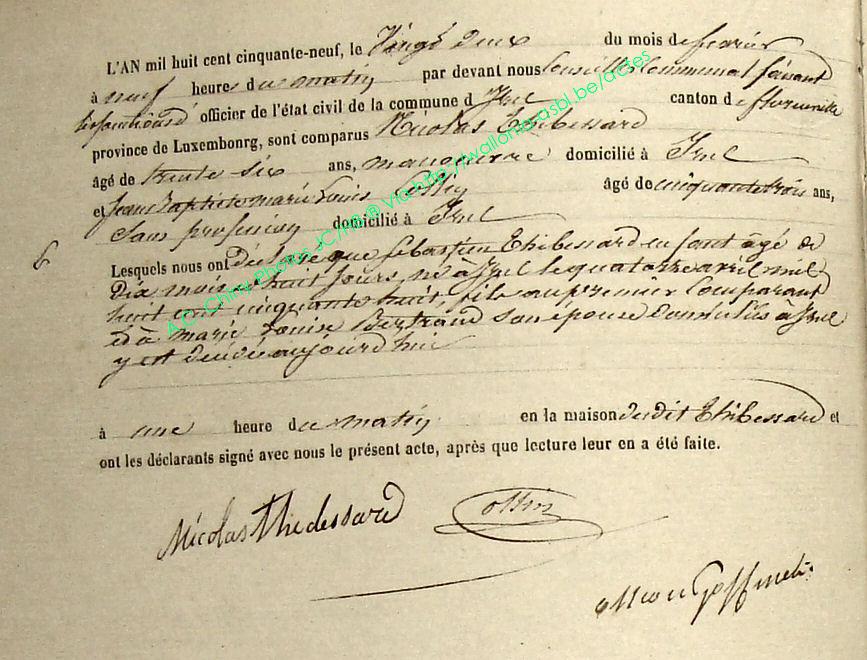 L'AN mil huit cent cinquante-neuf, le Vingt deux du mois de fevrier
à neuf heures du matin par devant nous Conseiller Communal faisant
les fonctions d' officier de l'état civil de la commune d Izel canton de florenville
province de Luxembonrg, sont comparus Nicolas Thibessard
âgé de trente six ans, manoeuvre domicilié à Izel
et Jean Baptiste marie Louis Collin âgé de cinquante trois ans,
Sans profession domicilié à Izel
Lesquels nous ont Déclaré que Sebastien Thibessard enfant âgé de
Dix mois huit Jours, né à Izel le quatorze avril mil
huit cent cinquante huit, fils au premier Comparant
et à marie Louise Bertrand son épouse domiciliés à Izel
y est décédé aujourd'hui
à une heure du matin en la maison dudit Thibessard et
ont les déclarants signé avec nous le présent acte, après que lecture leur en a été faite.
Nicolas Thibessard Collin
Goffinet
A.D. Chiny Photos JC/HB @ Via http://wallonia-asbl.be/actes